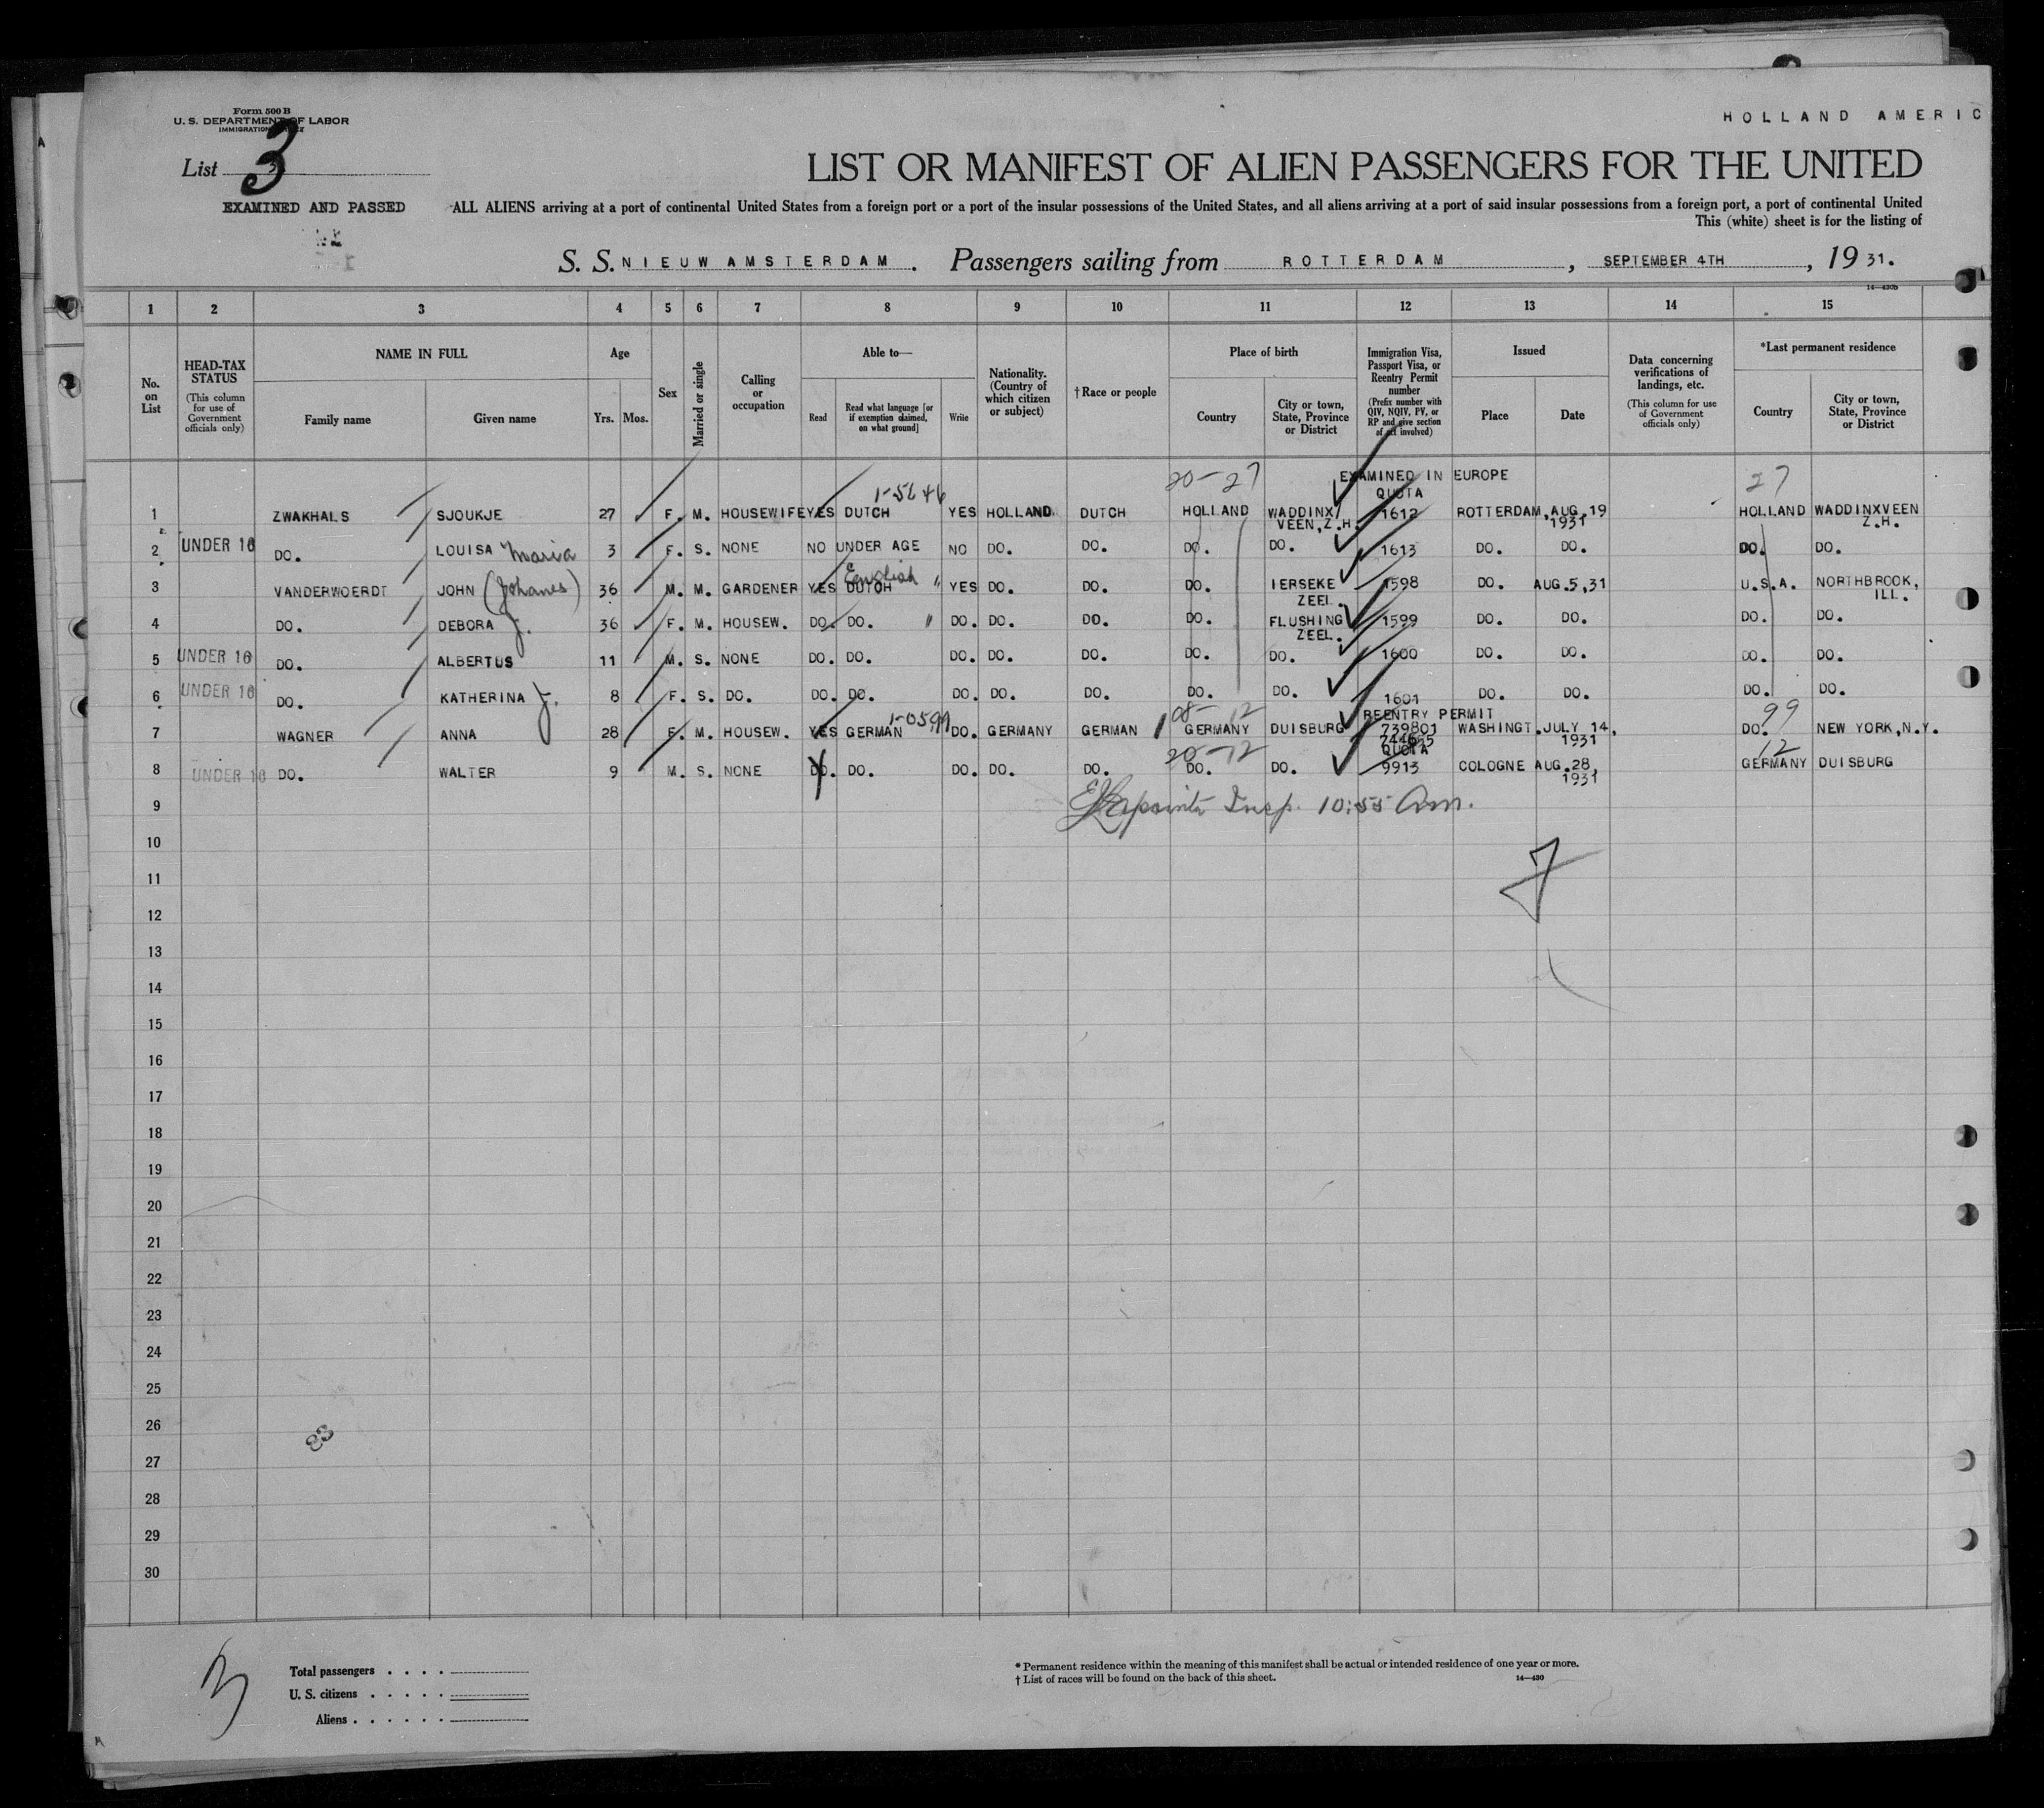 Form 500 B
U. S. DEPARTMENT OF LABOR
HOLLAND AMERIC
List 3
LIST OR MANIFEST OF ALIEN PASSENGERS FOR THE UNITED
EXAMINED AND PASSED
ALL ALIENS arriving at a port of continental United States from a foreign port or a port of the insular possessions of the United States, and all aliens arriving at a port of said insular possessions from a foreign port, a port of continental United
This (white) sheet is for the listing of
S. S. NIEUW AMSTERDAM. Passengers sailing from ROTTERDAM, SEPTEMBER 4TH, 19 31.
1 2 3 4 5 6 7 8 9 10 11 12 13 14 15
No. on List
HEAD-TAX STATUS (This column for use of Government officials only)
NAME IN FULL Family name Given name
Age Yrs. Mos.
Sex
Married or single
Calling or occupation
Able to— Read Read what language [or if exemption claimed, on what ground] Write
Nationality. (Country of which citizen or subject)
†Race or people
Place of birth Country City or town, State, Province or District
Immigration Visa, Passport Visa, or Reentry Permit number (Prefix number with QIV, NQIV, PV, or RP and give section of act involved)
Issued Place Date
Data concerning verifications of landings, etc. (This column for use of Government officials only)
*Last permanent residence Country City or town, State, Province or District
20-27 EXAMINED IN EUROPE 27
QUOTA
1 ZWAKHALS SJOUKJE 27 F. M. HOUSEWIFE YES DUTCH YES HOLLAND DUTCH HOLLAND WADDINX VEEN, Z.H. 1612 ROTTERDAM, AUG. 19 1931 HOLLAND WADDINXVEEN Z.H.
2 UNDER 16 DO. LOUISA Maria 3 F. S. NONE NO UNDER AGE NO DO. DO. DO. DO. 1613 DO. DO. DO. DO.
3 VANDERWOERDT JOHN (Johanes) 36 M. M. GARDENER YES DUTCH English " YES DO. DO. DO. IERSEKE ZEEL. 1598 DO. AUG.5,31 U.S.A. NORTHBROOK, ILL.
4 DO. DEBORA J. 36 F. M. HOUSEW. DO. DO. " DO. DO. DO. DO. FLUSHING ZEEL. 1599 DO. DO. DO. DO.
5 UNDER 16 DO. ALBERTUS 11 M. S. NONE DO. DO. DO. DO. DO. DO. DO. 1600 DO. DO. DO. DO.
6 UNDER 16 DO. KATHERINA J. 8 F. S. DO. DO. DO. DO. DO. DO. DO. DO. 1601 DO. DO. DO. DO.
08-12 REENTRY PERMIT 99
7 WAGNER ANNA 28 F. M. HOUSEW. YES GERMAN DO. GERMANY GERMAN GERMANY DUISBURG 739801 WASHINGT. JULY 14, 1931 DO. NEW YORK, N.Y.
20-12 QUOTA 12
8 UNDER 16 DO. WALTER 9 M. S. NONE DO. DO. DO. DO. DO. DO. DO. 9913 COLOGNE AUG. 28, 1931 GERMANY DUISBURG
9 Insp. 10:55 Am.
10
11
12
13
14
15
16
17
18
19
20
21
22
23
24
25
26
27
28
29
30
3
Total passengers
U. S. citizens
Aliens
* Permanent residence within the meaning of this manifest shall be actual or intended residence of one year or more.
† List of races will be found on the back of this sheet.
14—430